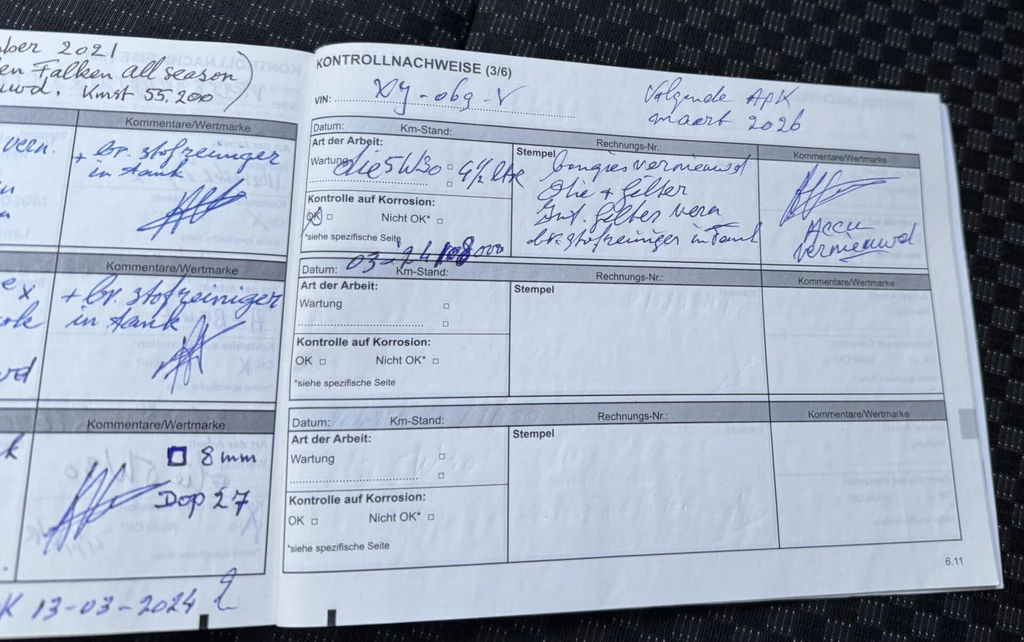 2021
en Falken all season
uwd. Kmst 55.200
Kommentare/Wertmarke
vern.
+ br. stofreiniger
in tank
Kommentare/Wertmarke
+ br. stofreiniger
in tank
Kommentare/Wertmarke
8 mm
Dop 27
13-03-2024
KONTROLLNACHWEISE (3/6)
VIN:
Volgende APK
maart 2026
Datum: Km-Stand: Rechnungs-Nr.: Kommentare/Wertmarke
Art der Arbeit:
Wartung
Olie 5W30 4½ LTR
Kontrolle auf Korrosion:
OK Nicht OK*
*siehe spezifische Seite
03-24 108000
Stempel
Bougies vernieuwd
Olie + filter
filter vern
brandstofreiniger in Tank
Accu
vernieuwd
Datum: Km-Stand: Rechnungs-Nr.: Kommentare/Wertmarke
Art der Arbeit:
Wartung
Kontrolle auf Korrosion:
OK Nicht OK*
*siehe spezifische Seite
Stempel
Datum: Km-Stand: Rechnungs-Nr.: Kommentare/Wertmarke
Art der Arbeit:
Wartung
Kontrolle auf Korrosion:
OK Nicht OK*
*siehe spezifische Seite
Stempel
6.11